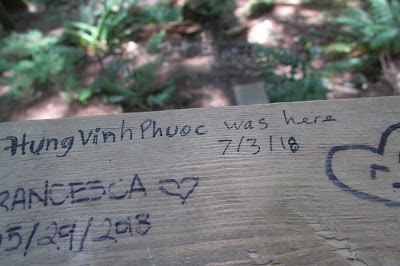 Hung Vinh Phuoc was here
7/3/18
FRANCESCA ♡
05/29/2018